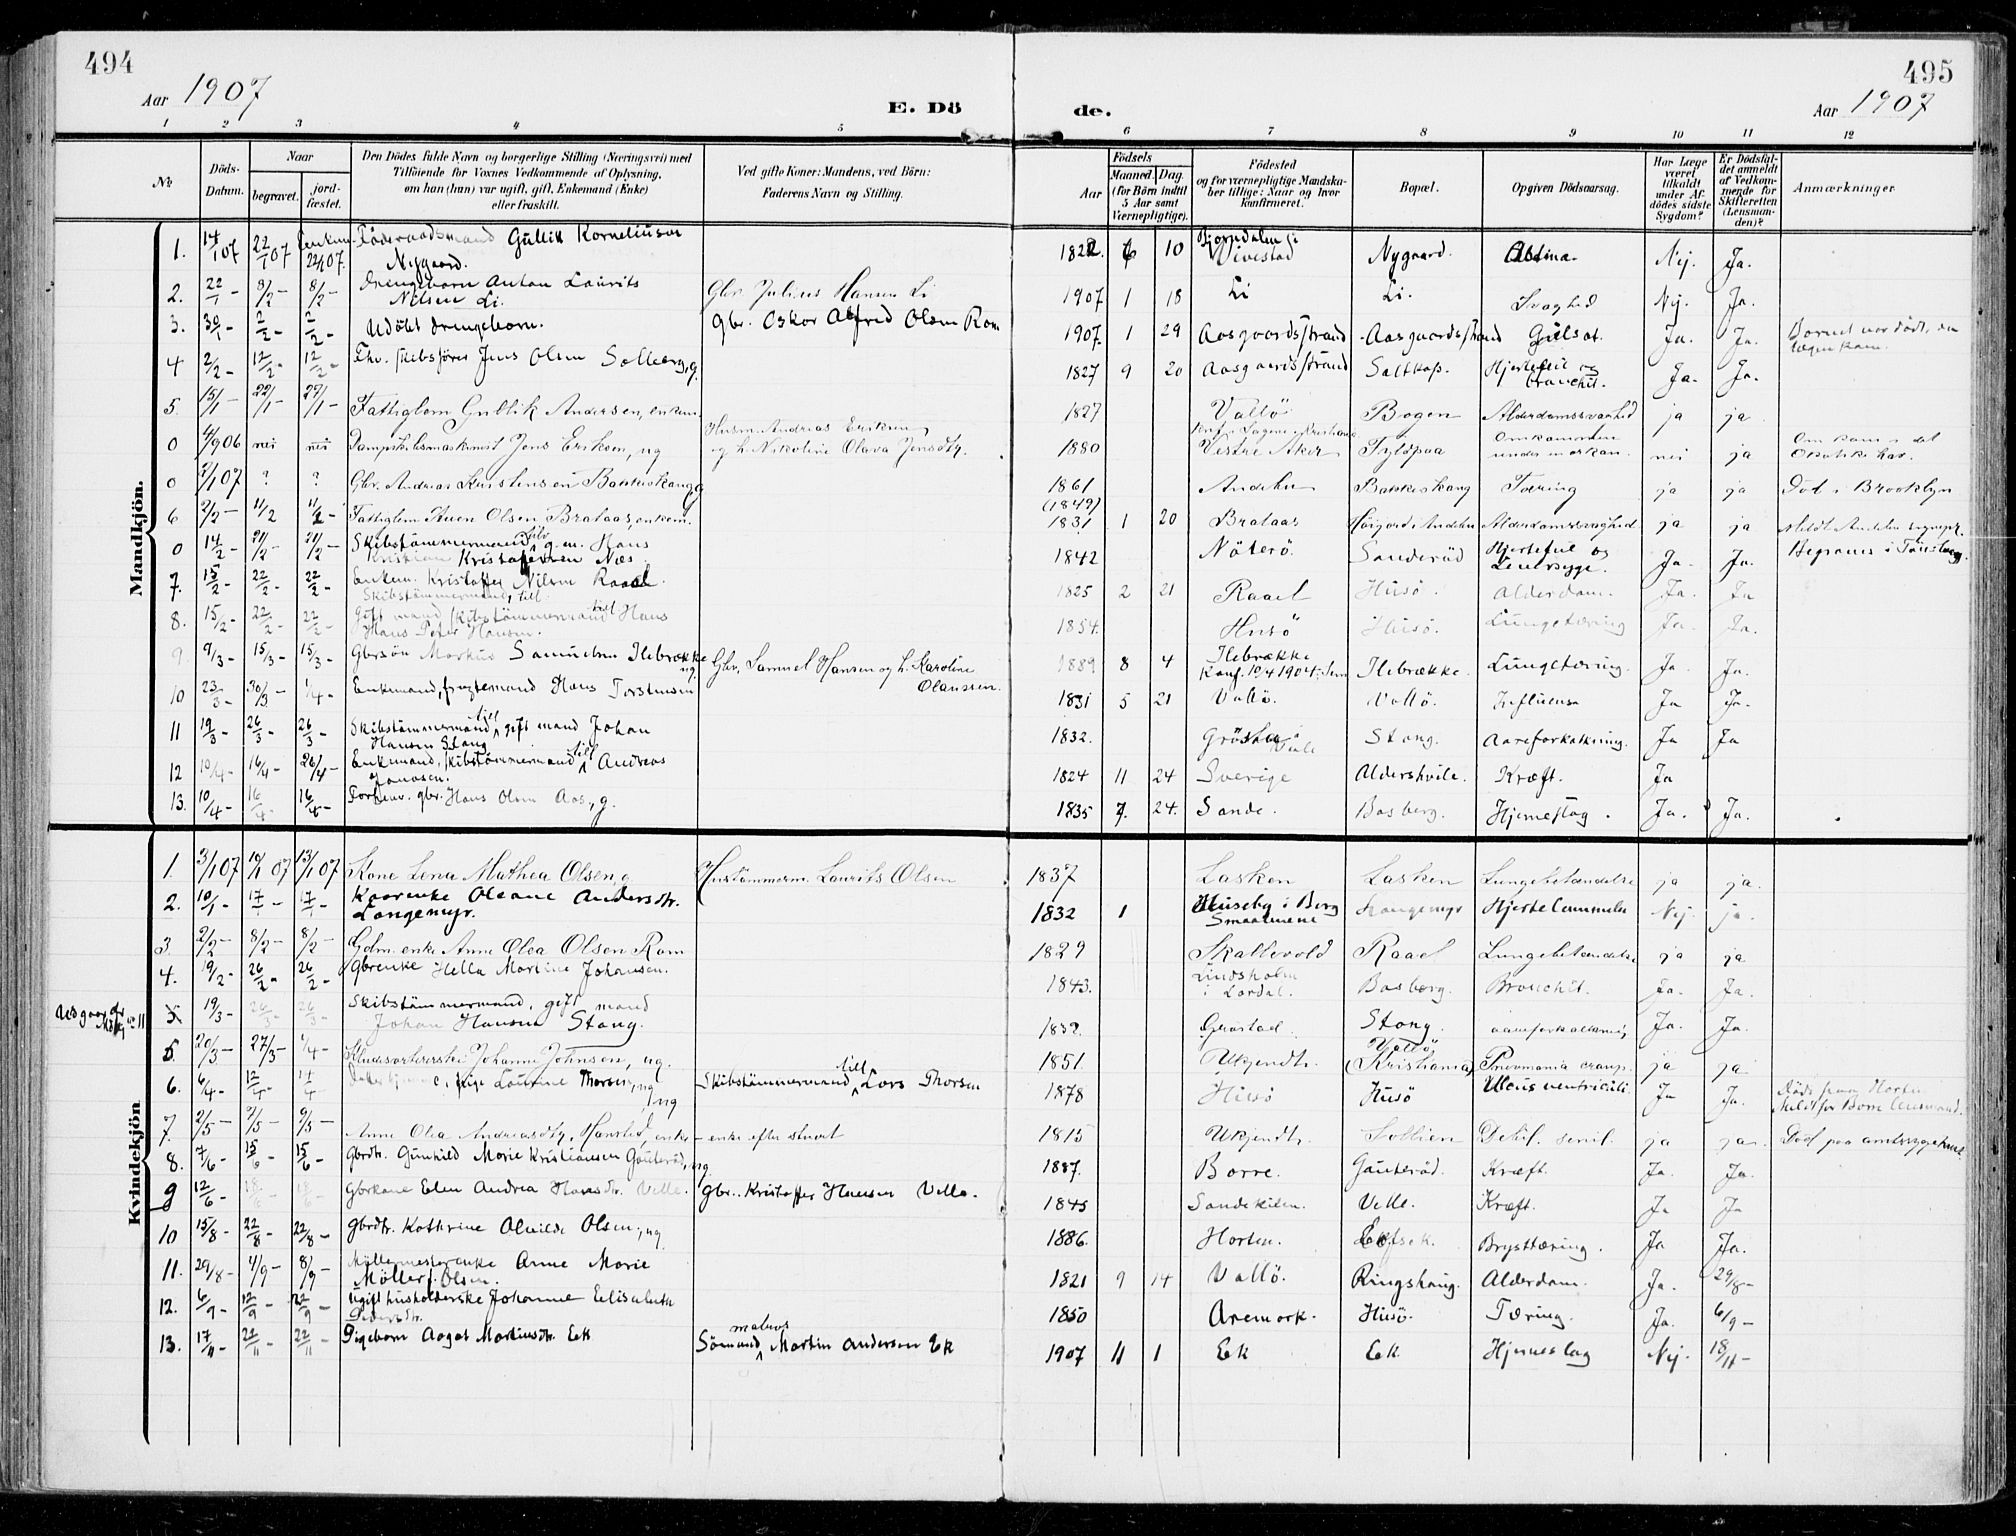 494
Aar 1907
E. Dö
de.
495
Aar 1907
1 2 3 4 5 6 7 8 9 10 11 12
No.
Döds-Datum.
Naar
begravet.
jord-fæstet.
Den Dödes fulde Navn og borgerlige Stilling (Næringsvei) med
Tilföiende for Voxnes Vedkommende af Oplysning,
om han (hun) var ugift, gift, Enkemand (Enke)
eller fraskilt.
Ved gifte Koner: Mandens, ved Börn:
Faderens Navn og Stilling.
Födsels
Aar
Maaned. Dag.
(for Börn indtil
5 Aar samt
Værnepligtige).
Födested
og for værnepligtige Mandska-
ber tillige: Naar og hvor
konfirmeret.
Bopæl.
Opgiven Dödsaarsag.
Har Læge
været
tilkaldt
under Af-
dödes sidste
Sygdom?
Er Dödsfal-
det anmeldt
af Vedkom-
mende for
Skifteretten
(Lensman-
den)?
Anmærkninger
Mandkjön.
1. 14/1 07 22/1 07 22/1 07. Föderaadsmand Gullik Korneliusen Nygaard. 1822. 6 10 Vivestad Nygaard. Nej. Ja.
2. 22/1 – 8/2 – 8/2 – Drengebarn Anton Laurits Nilsen Li. Gbr. Julius Hansen Li 1907 1 18 Li Li. Svaghed Nej. Ja.
3. 30/1 – 2/2 – 2/2 – Udöbt drengebarn. Gbr. Oskar Alfred Olsen Rom 1907. 1 29 Aasgaardsstrand Aasgaardsstrand Gulsot. Ja. Ja. Barnet var dödt, da lægen kom.
4 2/2 – 12/2 – 12/2 – Fhv. skibsförer Jens Olsen Solberg, g. 1827 9 20 Aasgaardsstrand Saltkop. Hjertefeil og bronchit. Ja. Ja.
5. 15/1 – 22/1 – 22/1 – Fattiglem Gullik Andersen, enkem. 1827 Vallö Bogen Alderdomssvaghed ja ja
0 4/9 06 nei nei Dampskibsmaskinist Jens Eriksen, ug Husm. Andreas Eriksen og h. Nikoline Olava Jensdtr. 1880 Vestre Aker omkommen nei ja Omkom i det Okotske hav.
0 2/1 07 ? ? Gbr. Andreas Kristensen Bakkeskaug, g 1861 Andebu Bakkeskaug Tæring ja ja Död i Brooklyn
6 2/2 – 11/2 11/2 – Fattiglem Iten Olsen Brataas, enkem. (1849) 1831 1 20 Brataas Alderdomssvaghed ja ja
0 14/2 – 21/2 – 21/2 – Skibstömmermand g. m. Hans Kristian Kristoffersen Næs. 1842 Nöterö. Sanderöd Hjertefeil og Leversyge. Ja. Ja. Begraves i Tönsberg.
7. 15/2 – 22/2 – 22/2 – Enkem. Kristoffer Nilsen Raael. Skibstömmermand, till. 1825 2 21 Raael Husö. Alderdom. Ja. Ja
8. 15/2 – 22/2 – 22/2 – Gift mand skibstömmermand till Hans Hans Peter Hansen. 1854. Husö Husö. Lungetæring Ja. Ja.
9. 9/3 – 15/3 – 15/3 – Gbrsön Markus Samuelsen Ilebrække ug. Gbr. Samuel Hansen og h. Karoline Olaussen. 1889 8 4 Ilebrække Konf. 10/4 1904 i Sem Ilebrække. Lungetæring. Ja. Ja.
10 23/3 – 30/3 – 1/4 – Enkemand, fragtemand Hans Torstensen 1831 5 21 Vallö. Vallö. Influensa Ja Ja.
11 19/3 – 26/3 – 26/3 – Skibstömmermand, till gift mand Johan Hansen Stang 1832. Stang. Aareforkalkning. Ja Ja
12 10/4 – 16/4 – 26/4 – Enkemand, skibstömmermand till Andreas Jonassen. 1824 11 24 Sverige Aldershvile. Kræft. Ja
13. 10/4 – 16/4 – 16/4 – Forhenv. gbr. Hans Olsen Aas, g. 1835 7. 24. Sande. Basberg. Hjerneslag. Ja. Ja.
Kvindekjön
1. 3/1 07 10/1 07 13/1 07 Kone Lena Mathea Olsen, g. Hustömmerm. Laurits Olsen 1837 Lasken Lasken Lungebetændelse ja ja.
2. 10/1 – 17/1 – 17/1 – Kaarenke Oleane Andersdtr. Langemyr. 1832 1 Huseby i Berg Smaalenene Langemyr Hjertelammelse Nej. ja.
3. 2/2 – 8/2 – 8/2 – Gdm. enke Anne Olea Olsen Rom 1829 Skallevold Raael Lungebetændelse ja ja
4. 19/2 – 26/2 – 26/2 – Gbrenke Hella Martine Johansen. 1843. Lindsholm i Lardal. Basberg. Bronchit. Ja. Ja.
Udgaar, se Mkj. no 11
5 19/3 – 26/3 – 26/3 – Skibstömmermand, gift mand Johan Hansen Stang. 1832. Grostad. Stang. aareforkalkning Ja. Ja.
5. 20/3 – 27/3 – 1/4 – Johanne Johnsen, ug. 1851. Ukjendt. Vallö (Kristiania) Pneumonia croup. ja ja
6. 6/4 – 12/4 – 14/4 Laurine Thorsen, ug Skibstömmermand till Lars Thorsen 1878 Husö Husö Ulcus ventriculi. Ja Ja. Döde paa Horten Meldt for Borre Lensmand.
7. 2/5 – 9/5 – 9/5 – Anne Olea Andreasdtr. Hansted, enke – enke efter stuert 1815 Ukjendt. Sollien Debil. senil. ja ja. Död paa amtssygehuset.
8. 7/6 – 15/6 – 15/6 – Gbrdtr. Gunhild Marie Kristiansen Gauteröd, ug. 1887. Borre. Gauteröd. Kræft. Ja. Ja.
9 12/6 – 18/6 – 18/6 – Gbrkone Elen Andrea Hansdtr. Velle. Gbr. Kristoffer Hansen Velle. 1845 Sandekilen. Velle. Kræft. Ja Ja
10 15/8 – 22/8 – 22/8 – Gbrdtr. Kathrine Olvilde Olsen, ug 1886. Horten. Brysttæring. Ja Ja.
11. 29/8 – 4/9 – 8/9 – Möllermesterenke Anne Marie Möller f. Olsen. 1821 9 14 Vallö. Ringshaug. Alderdom. Ja. 29/8 –
12. 6/9 – 12/9 – 22/9 – Ugift husholderske Johanne Elisabeth Pedersdtr. 1850 Aremark. Husö. Tæring. Ja. 6/9 –
13. 17/11 – 22/11 – 22/11 – Pigebarn Aagot Martinsdtr. Eek Sömand matros Martin Andersen Ek 1907 11 1 Eek Eek Hjerneslag Nej. 18/11 –